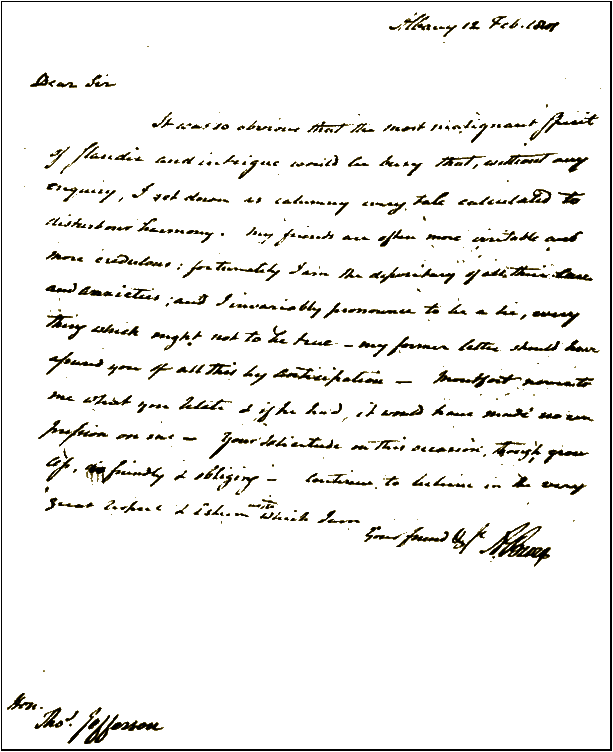 Albany 12 Feb. 1801
Dear Sir
It was so obvious that the most malignant spirit
of slander and intrigue would be busy that, without any
enquiry, I set down as calumny every tale calculated to
disturb our harmony. My friends are often more irritable and
more credulous: fortunately I am the depositary of all their cares
and anxieties; and I invariably pronounce to be a lie, every
thing which ought not to be true – my former letter should have
assured you of all this by anticipation – Montfort never to
me what you relate & if he had, it would have made no im
pression on me – Your solicitude on this occasion, though groun
less, is friendly & obliging – Continue to believe in the very
great respect & esteem with which I am
Your friend & st A. Burr
Hon.
Thos. Jefferson